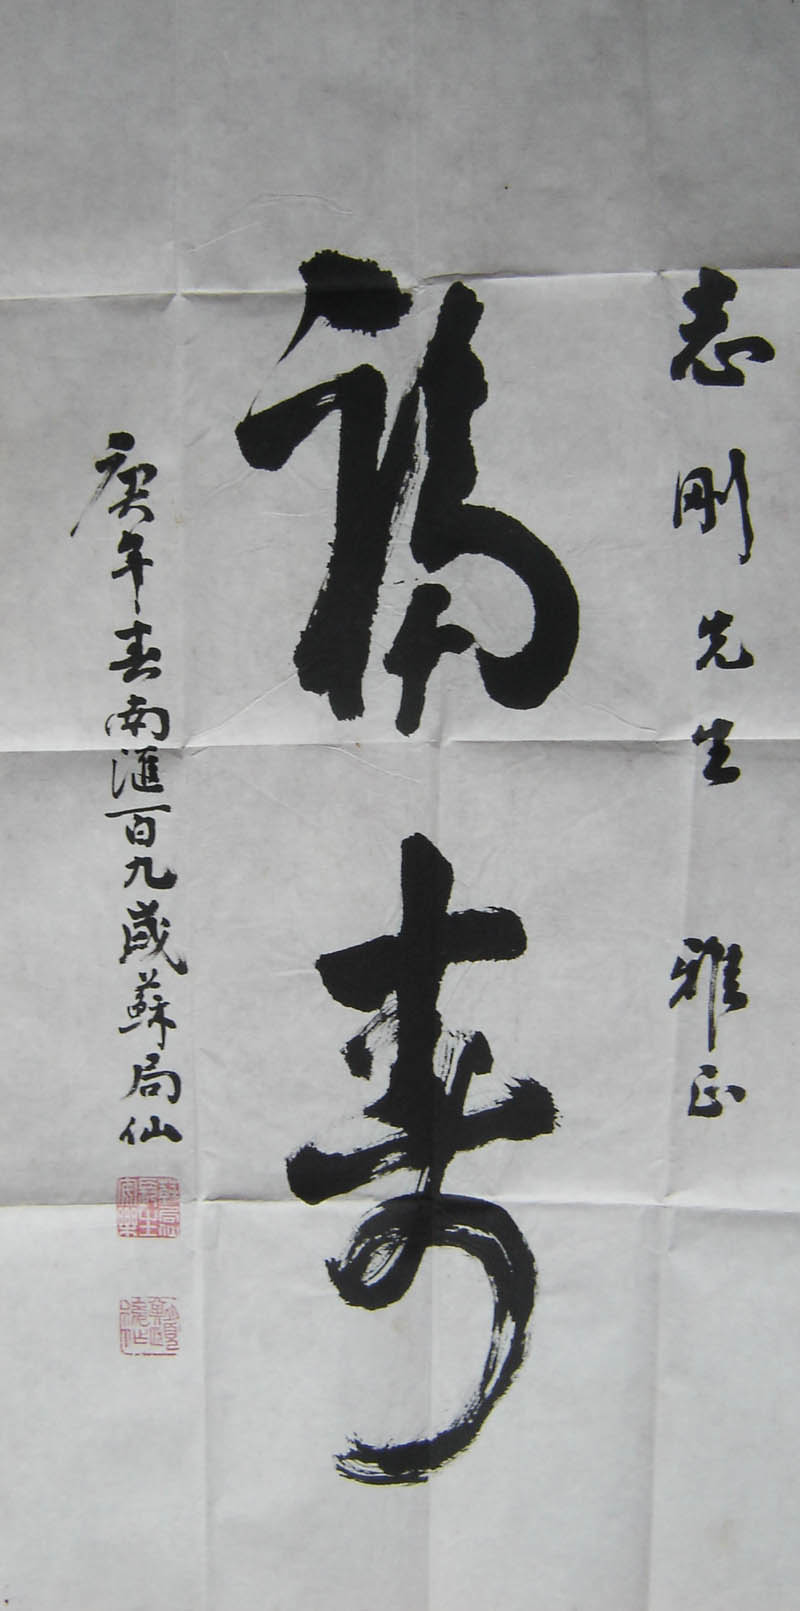 志刚先生 雅正
福寿
庚午春南滙百九歲蘇局仙